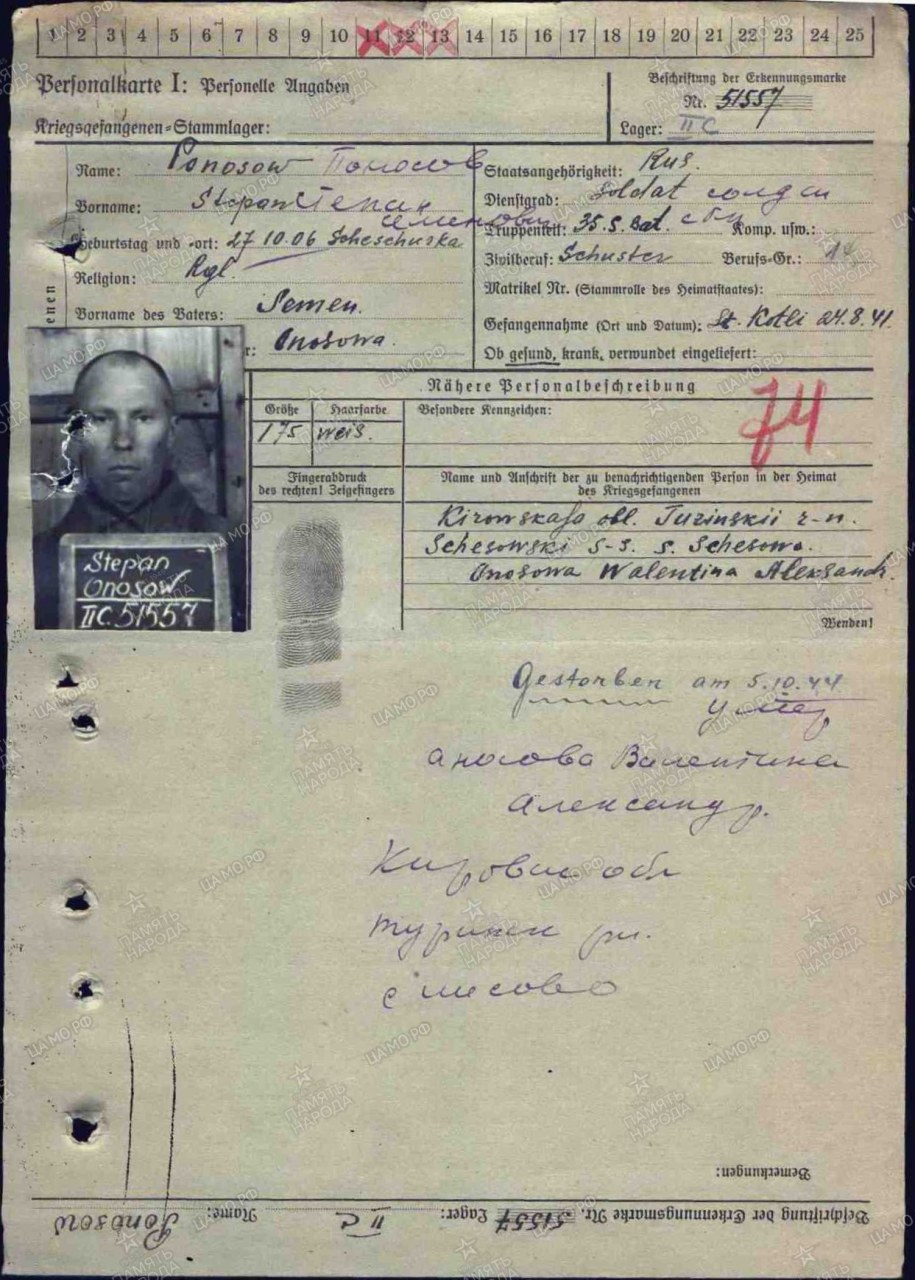 1 2 3 4 5 6 7 8 9 10 11 12 13 14 15 16 17 18 19 20 21 22 23 24 25
Personalkarte I: Personelle Angaben
Kriegsgefangenen-Stammlager:
Beschriftung der Erkennungsmarke
Nr. 51557
Lager: II C
Name: Ponosow Поносов
Vorname: Stepan Степан
Семенович
Geburtstag und -ort: 27 10.06 Scheschurka
Religion:
Vorname des Vaters: Semen.
Onosowa.
Staatsangehörigkeit: Rus.
Dienstgrad: Soldat солдат
Truppenteil: 35. S. Bat. Komp. usw.:
Zivilberuf: Schuster Berufs-Gr.:
Matrikel Nr. (Stammrolle des Heimatstaates):
Gefangennahme (Ort und Datum): St. Kotli 24.8.41.
Ob gesund, krank, verwundet eingeliefert:
Nähere Personalbeschreibung
Größe Haarfarbe Besondere Kennzeichen:
175 weis.
74
Fingerabdruck
des rechten! Zeigefingers
Name und Anschrift der zu benachrichtigenden Person in der Heimat
des Kriegsgefangenen
Kirowskaja obl. Tuzinskii r-n.
Schesowski s-s. s. Schesowo.
Onosowa Walentina Aleksandr.
Wenden!
Stepan
Onosow
II C. 51557
Gestorben am 5.10.44
умер
аносова Валентина
Александр.
Кировск обл
с шесово
Bemerkungen:
Beschriftung der Erkennungsmarke Nr. 51557 Lager: II C Name: Ponosow
ЦАМО РФ
ПАМЯТЬ НАРОДА